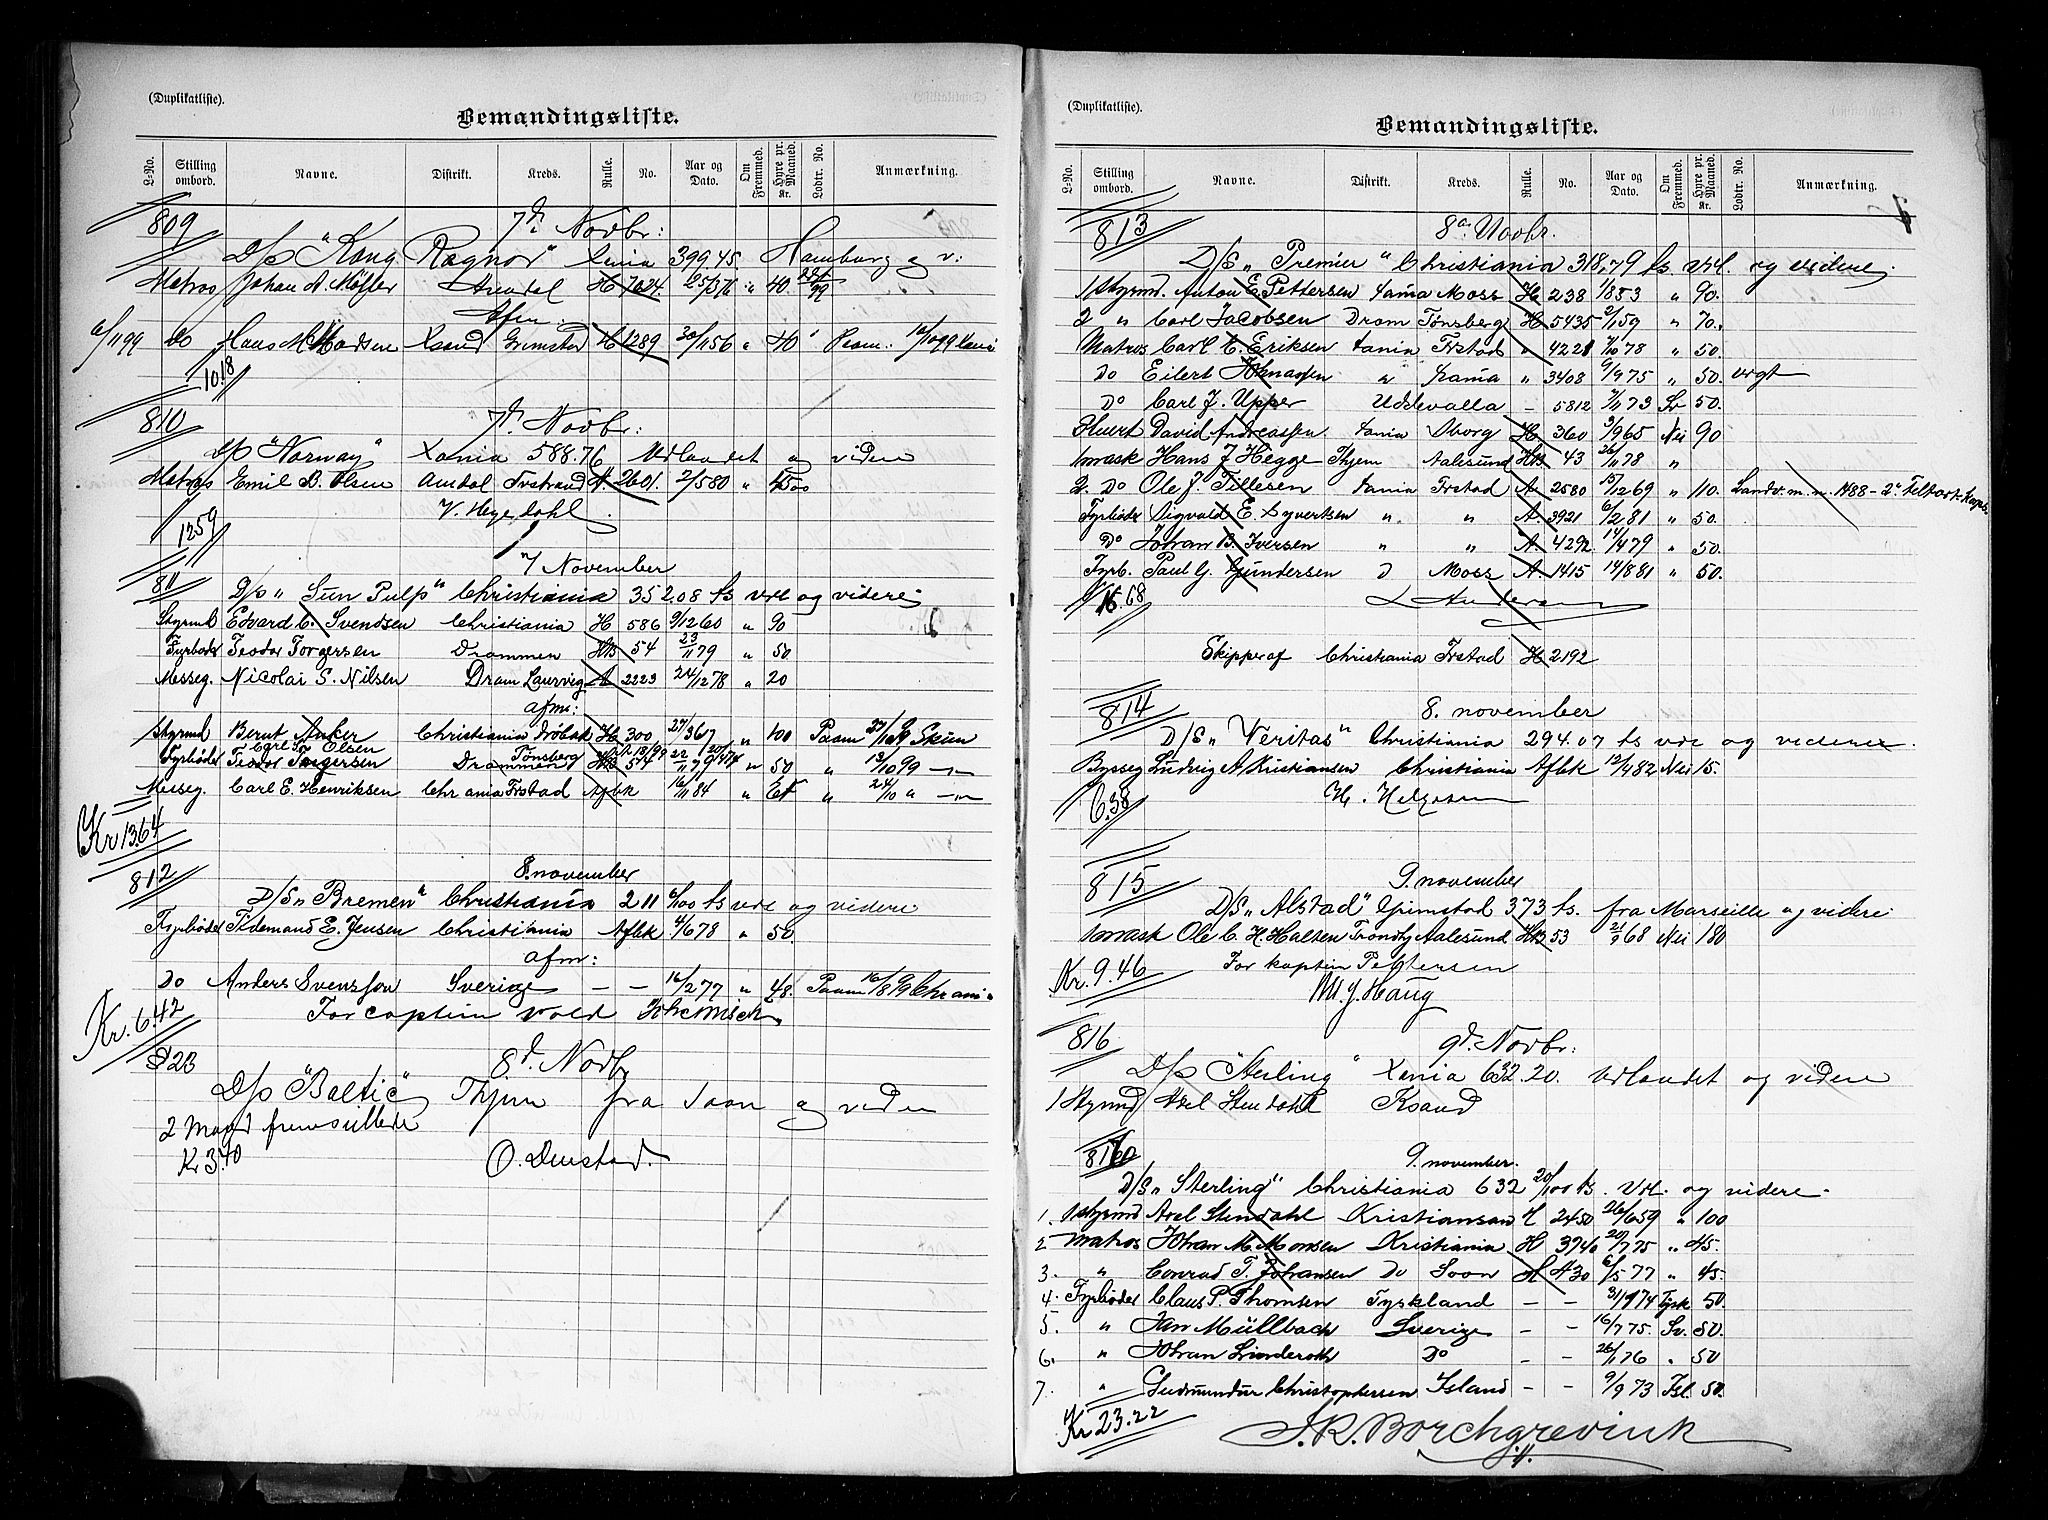 (Duplikatliste).
Bemandingsliste.
L-No. Stilling ombord. Navne. Distrikt. Kreds. Rulle. No. Aar og Dato. Om Fremmed. Hyre pr. Maaned. Kr. Lodtr. No. Anmærkning.
809 7d Novbr:
D/s "Kong Ragnar" Xania 399.45. Hamburg og v:
Matros Johan A. Arendal H 7024 25/3 76 " 40.
Afm:
6/11 99 Do Hans M Madsen Xsand Grimstad H 1289 30/1 56 " 40 " Paam. 16/10 99 Xania
10.18
810 7d Novbr:
D/s "Norway" Xania 588.76 Udlandet og videre
Matros Emil B. Olsen Arendal Frstrand A. 2601. 2/5 80 " 45 00
V. Heyerdahl
12.59
811 7 November
D/s "Sun Pulp" Christiania 352.08 ts Udl og videre
Styrmd Edvard C. Svendsen Christiania H. 586 9/12 60 " 90
Fyrbøder Teodor Torgersen Drammen HB 54 23/11 79 " 50
Messeg. Nicolai S. Nilsen Dram Laurvig A 2223 24/12 78 " 20
afm:
Styrmd Bernt Anker Christiania Drøbak H. 300 27/3 67 " 100 Paam 27/10 99 Skien
Carl Olsen Tønsberg
Fyrbøder Teodor Torgersen Drammen HB 54 22/11 79 " 50 " 13/10 99 —"—
Messeg. Carl E. Henriksen Chrania Frstad Afbk 16/11 84 " " 24/10 " —"—
Kr 13.64
812 8. november
D/S "Bremen" Christiania 211 6/100 ts Udl og videre
Fyrbøder Tidemand E. Jensen Christiania Afbk 4/6 78 " 50.
afm:
Do Anders Svensson Sverige — — 16/2 77 " 48. Paam 16/8 99 Chrania
For captein Vold
Kr. 6.42
8d Novbr
D/s "Baltic" Thjem fra Soon og videre
2 Mand fremstillede
Kr 3.40 O. Denstad.
(Duplikatliste).
Bemandingsliste.
L-No. Stilling ombord. Navne. Distrikt. Kreds. Rulle. No. Aar og Dato. Om Fremmed. Hyre pr. Maaned. Kr. Lodtr. No. Anmærkning.
813 8de Novbr.
D/S "Premier" Christiania 318,79 ts Udl. og videre
1 Styrmd. Anton E. Pettersen Xania Moss H 238 1/8 53 " 90.
2 " Carl Jacobsen Dram Tønsberg H 5435 2/1 59 " 70.
Matros Carl H. Eriksen Xania Frstad " 4221 7/10 78 " 50.
Do Eilert Johnassen " Xania " 3408 6/9 75 " 50. vrgt
Do Carl J. Upper Uddevalla - 5812 7/11 73 Sv 50.
Stuert David Andreassen. Xania Sborg H. 360 3/9 65 Nei 90
1 mask Hans J Hegge Thjem Aalesund HB 43 26/11 78 "
2. Do Ole J. Tillesen Xania Frstad A. 2580 15/12 69 " 110. Landv. m. n. 1488 - 2. Feltart.
Fyrbøder Sigvald E. Syvertsen " " A. 3921 6/2 81 " 50.
Do Johan B. Iversen " " A. 4292 14/4 79 " 50.
Fyrb. Paul G. Gundersen D Moss A. 1415 14/8 81 " 50.
16.68 L Andersen
Skipper af Christiania Frstad H 2192
814 8. november
D/S "Veritas" Christiania 294.07 ts ude og videre.
Bysseg Ludvig A Kristiansen Christiania Afbk 12/4 82 Nei 15.
6.38 H. Helgesen
815 9. november
D/S "Alstad" Grimstad 373 ts. fra Marseille og videre
1 mask Ole C. H. Halsen Trondhj Aalesund HB 53 21/9 68 Nei 180
Kr. 9.46 For kaptein Pettersen
M. J. Haug
816 9d. Novbr:
D/s "Sterling" Xania 632.20. Udlandet og videre
1 Styrmd Axel Stendahl Ksand
816 9. november.
D/S "Sterling" Christiania 632 20/100 ts. Udl. og videre.
1. 1 Styrmd Axel Stendahl Kristiansan H 2450 26/6 59 " 100
2 Matros Johan M. Monsen Kristiania H 3740 20/7 75 " 45.
3. " Conrad T. Johansen Do Soon H 430 6/5 77 " 45.
4. Fyrbøder Claus P. Thomsen Tyskland — — 31/1 74 Tysk 50.
5. " Jan Müllbach Sverige — — 16/7 75. Sv. 50.
6. " Johan Linderoth Do — — 26/1 76 " 50
7. " Gudmundur Christophersen Island — — 9/9 73 Isl. 50.
Kr 23.22 S. R. Borchgrevink